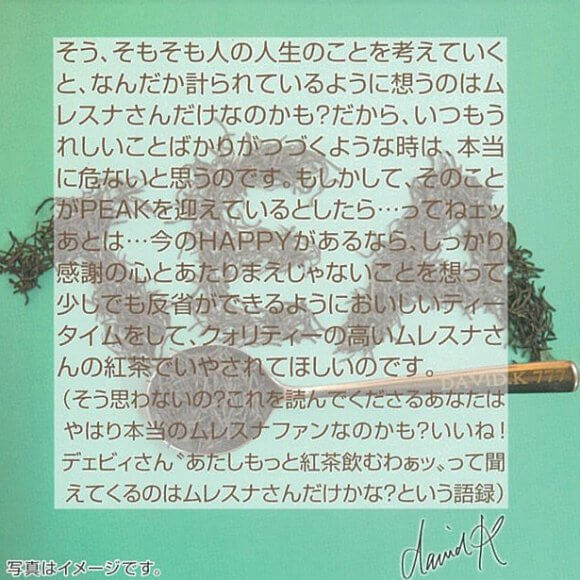 そう、そもそも人の人生のことを考えていく
と、なんだか計られているように想うのはム
レスナさんだけなのかも?だから、いつもう
れしいことばかりがつづくような時は、本当
に危ないと思うのです。もしかして、そのこと
がPEAKを迎えているとしたら…ってねェッ
あとは…今のHAPPYがあるなら、しっかり
感謝の心とあたりまえじゃないことを想って
少しでも反省ができるようにおいしいティー
タイムをして、クォリティーの高いムレスナさ
んの紅茶でいやされてほしいのです。
DAVID.K 777
(そう思わないの?これを読んでくださるあなたは
やはり本当のムレスナファンなのかも?いいね!
デェビィさん〝あたしもっと紅茶飲むわぁッ〟って聞
えてくるのはムレスナさんだけかな?という語録)
david K
写真はイメージです。
TEA